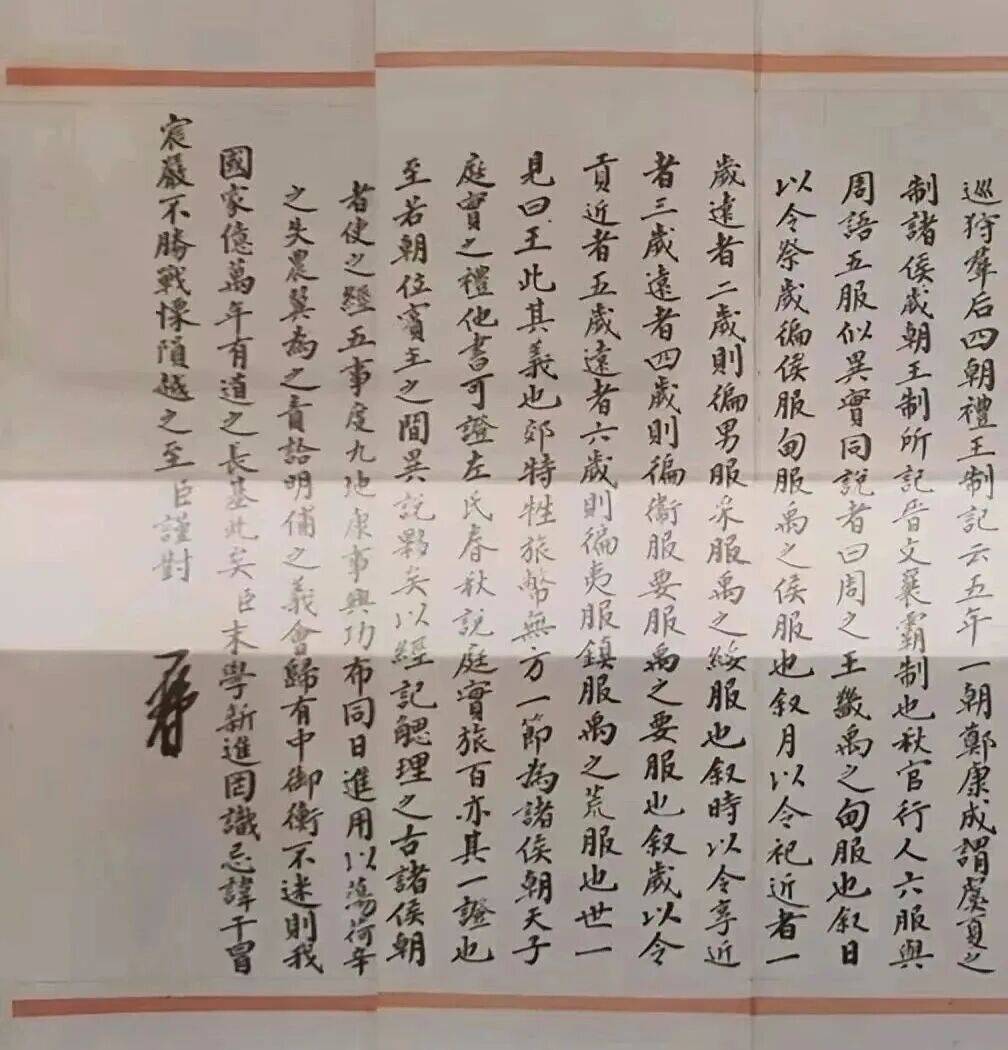 巡狩羣后四朝禮王制記云五年一朝鄭康成謂虞夏之
制諸侯歲朝王制所記晉文襄霸制也秋官行人六服與
周語五服似異實同說者曰周之王畿禹之甸服也叙日
以令祭歲徧侯服甸服禹之侯服也叙月以令祀近者一
歲遠者二歲則徧男服采服禹之綏服也叙時以令享近
者三歲遠者四歲則徧衞服要服禹之要服也叙歲以令
貢近者五歲遠者六歲則徧夷服鎮服禹之荒服也世一
見曰王此其義也郊特牲旅幣無方一節為諸侯朝天子
庭實之禮他書可證左氏春秋說庭實旅百亦其一證也
至若朝位賓主之間異說夥矣以經記鰓理之古諸侯朝
者使之經五事度九地康事興功布同日進用以蕩苛辛
之失農冀為之責詥明俌之義會歸有中御衡不迷則我
國家億萬年有道之長基此矣臣末學新進罔識忌諱干冒
宸嚴不勝戰慄隕越之至臣謹對